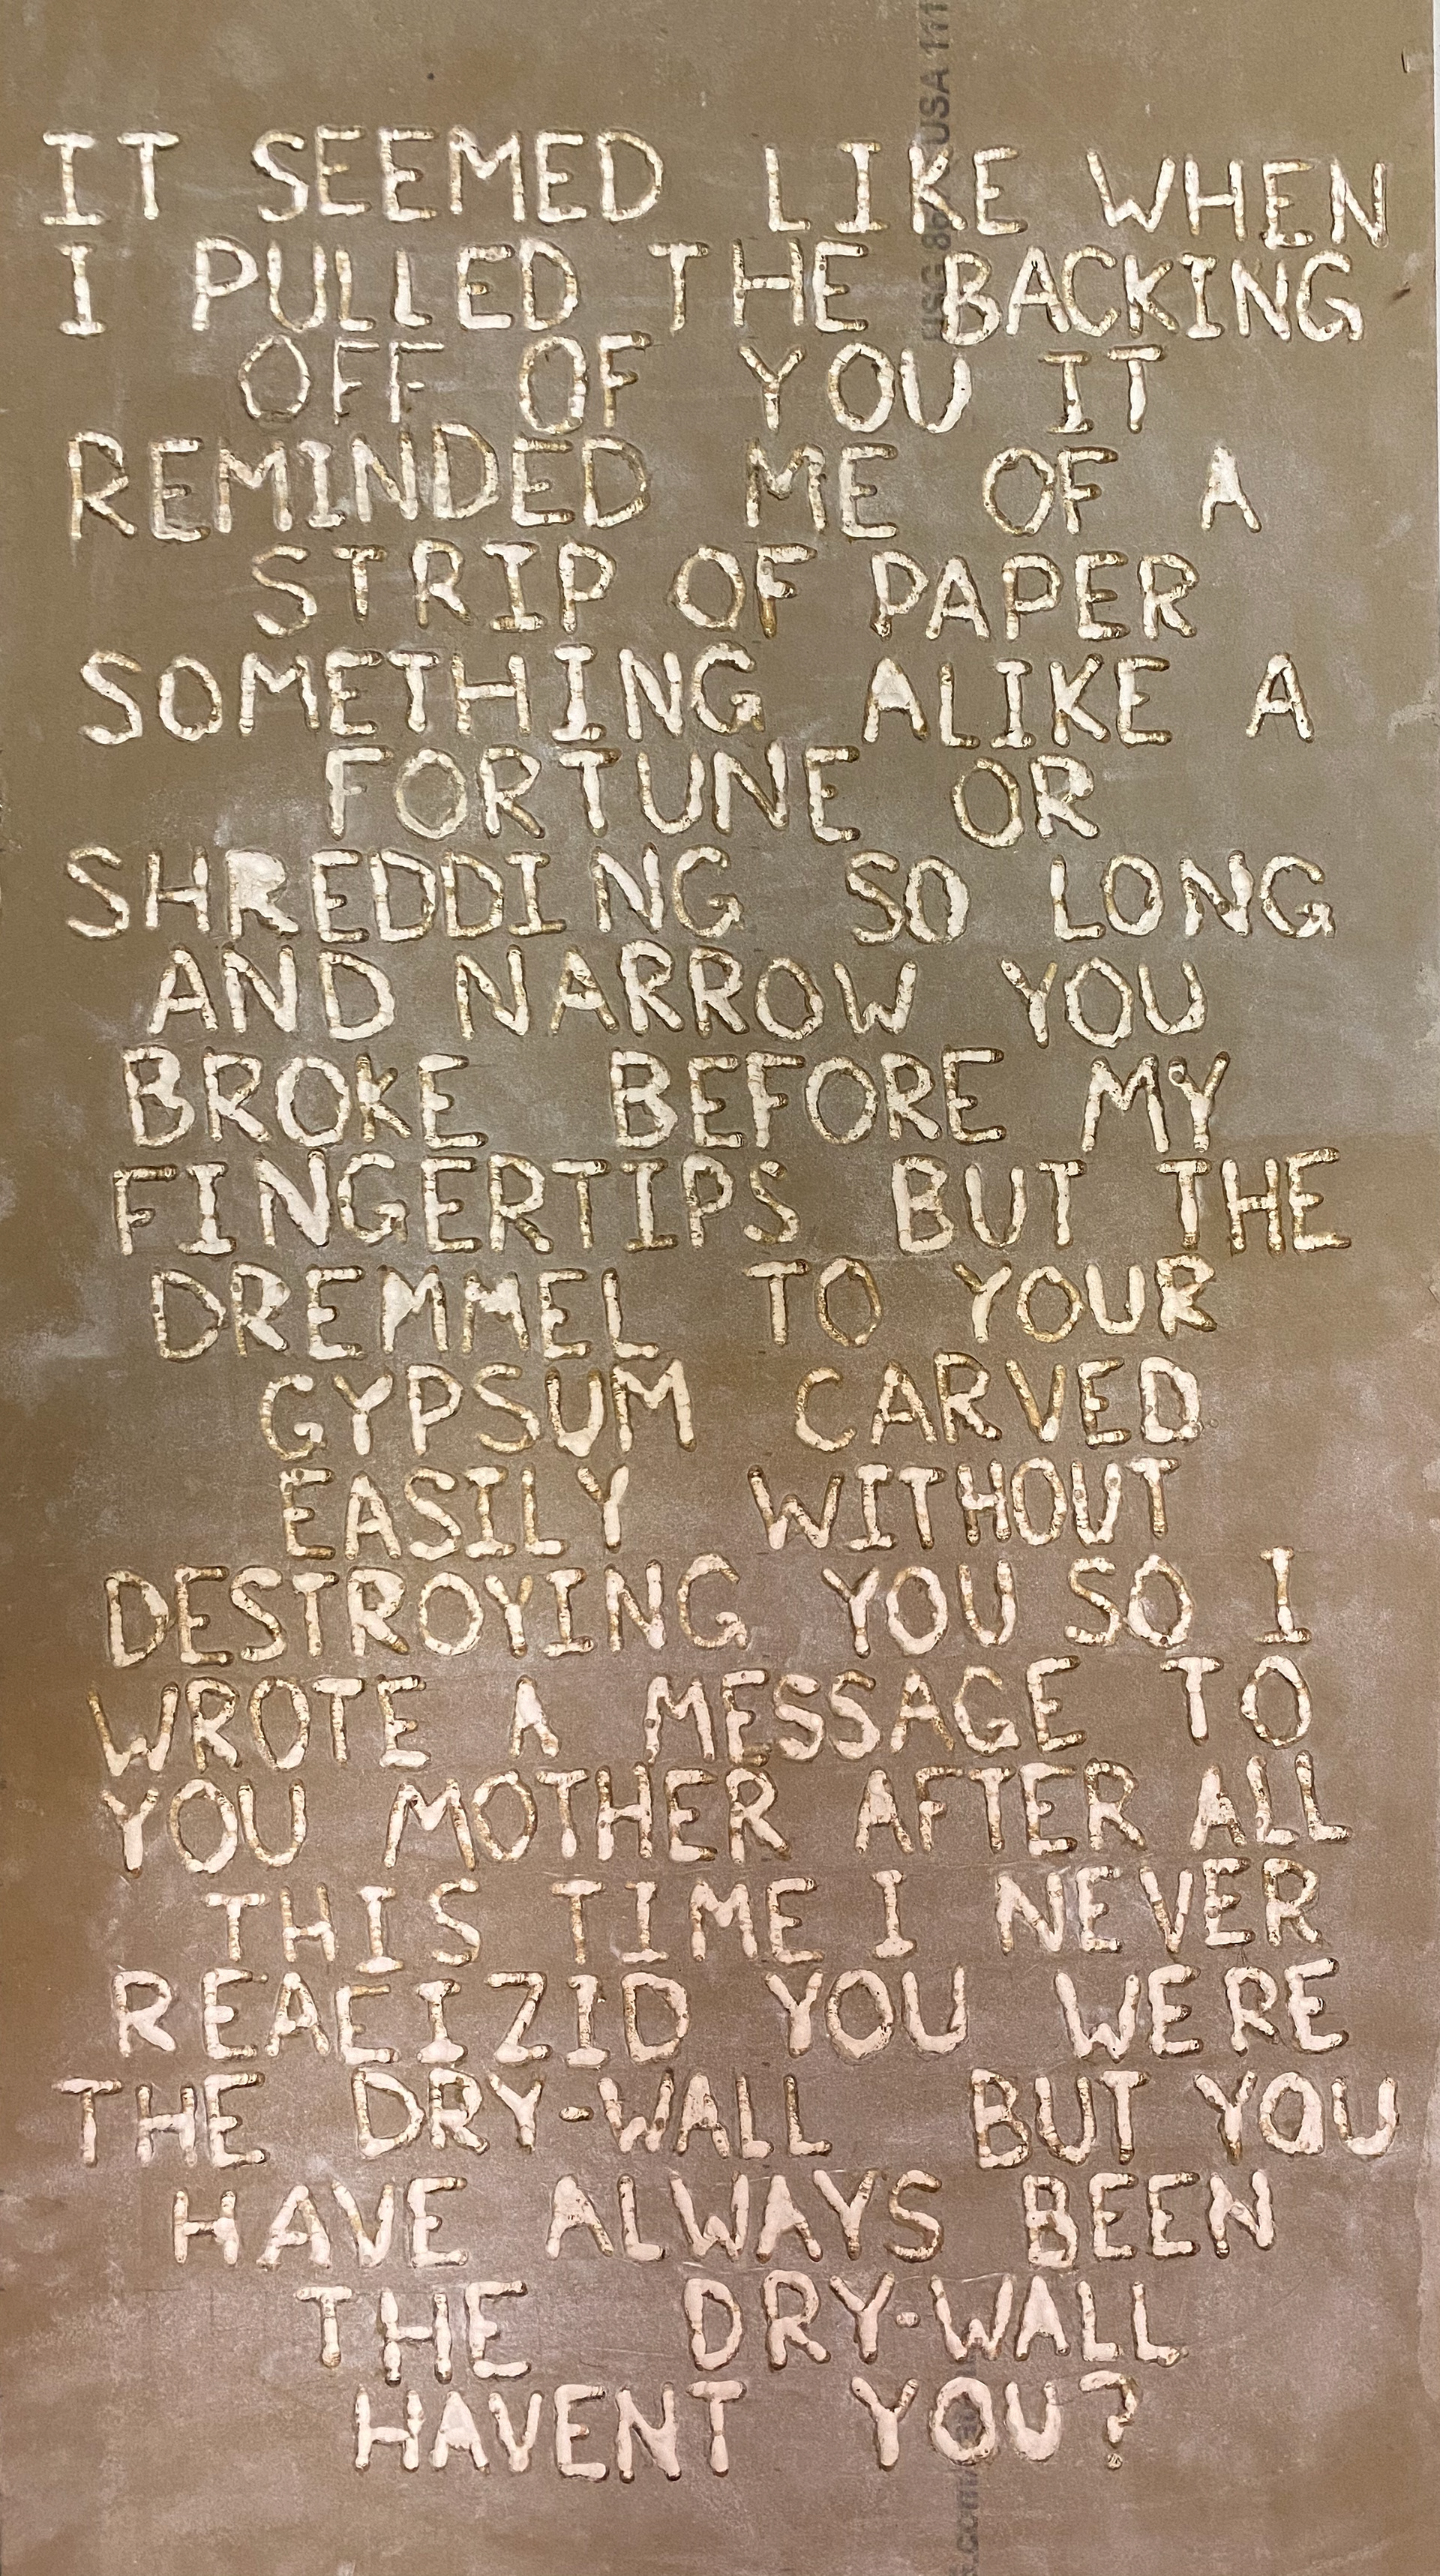 IT SEEMED LIKE WHEN
I PULLED THE BACKING
OFF OF YOU IT
REMINDED ME OF A
STRIP OF PAPER
SOMETHING ALIKE A
FORTUNE OR
SHREDDING SO LONG
AND NARROW YOU
BROKE BEFORE MY
FINGERTIPS BUT THE
DREMMEL TO YOUR
GYPSUM CARVED
EASILY WITHOUT
DESTROYING YOU SO I
WROTE A MESSAGE TO
YOU MOTHER AFTER ALL
THIS TIME I NEVER
REALIZID YOU WERE
THE DRY-WALL BUT YOU
HAVE ALWAYS BEEN
THE DRY-WALL
HAVENT YOU?
USG USA 111